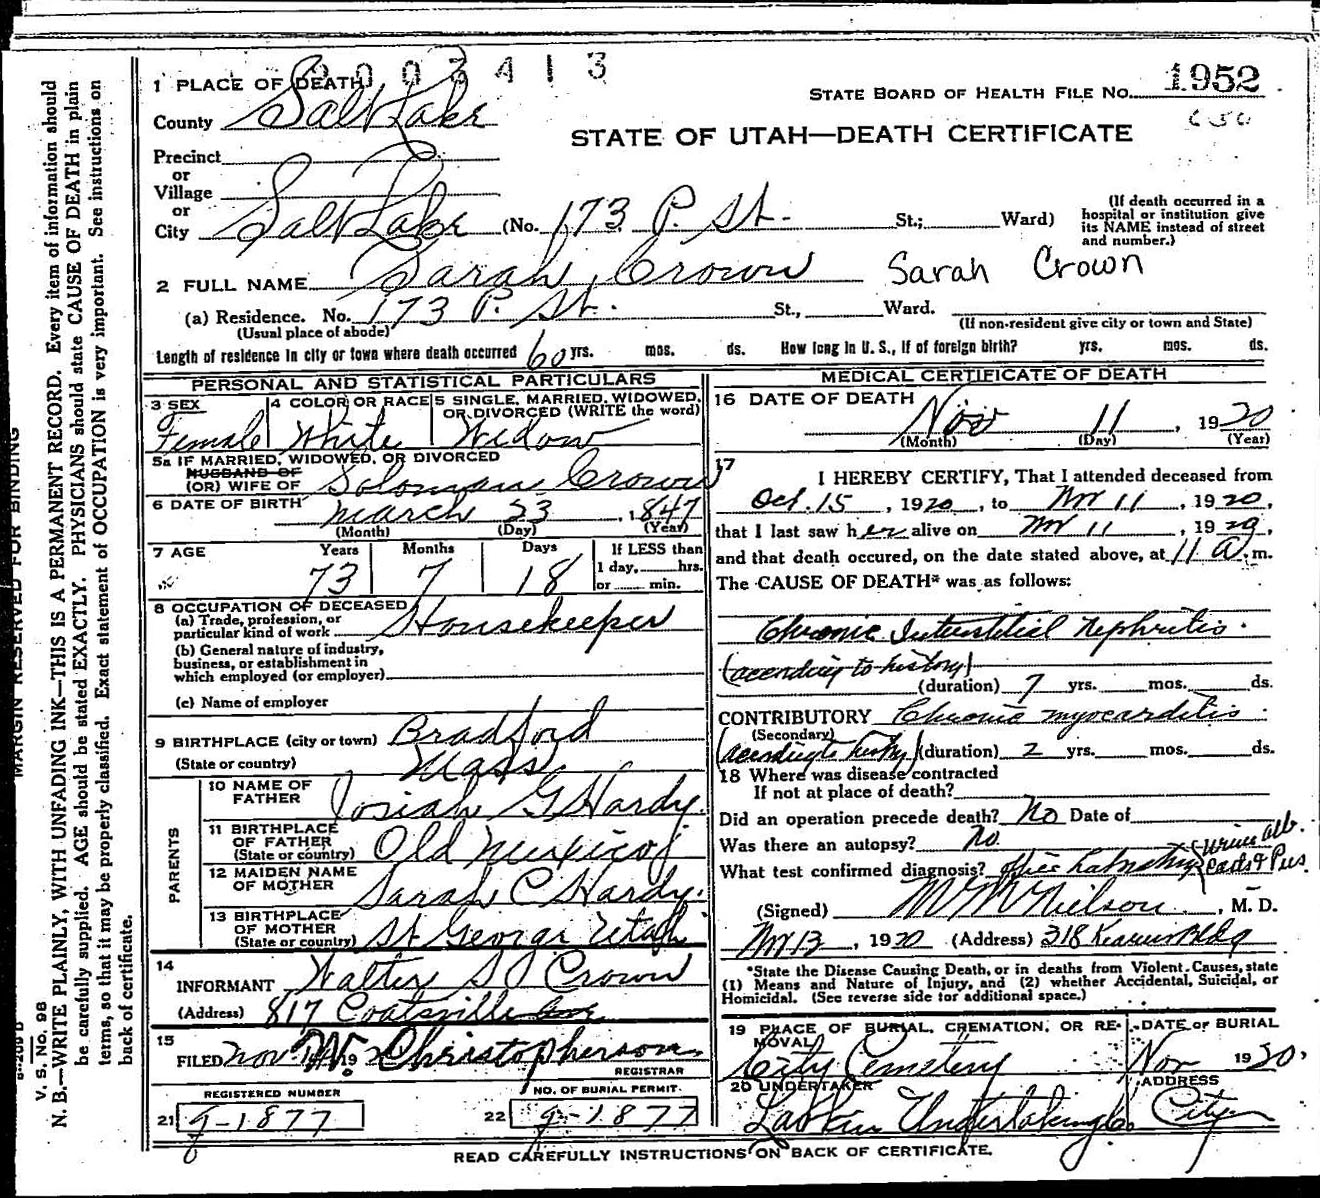 003413
1 PLACE OF DEATH
STATE BOARD OF HEALTH FILE NO. 1952
County Salt Lake
STATE OF UTAH—DEATH CERTIFICATE
Precinct
or
Village
or
City Salt Lake (No. 173 P. St. St.; Ward)
(If death occurred in a
hospital or institution give
its NAME instead of street
and number.)
2 FULL NAME Sarah Crown Sarah Crown
(a) Residence. No. 173 P. St. St., Ward.
(Usual place of abode) (If non-resident give city or town and State)
Length of residence in city or town where death occurred 60 yrs. mos. ds. How long in U. S., if of foreign birth? yrs. mos. ds.
PERSONAL AND STATISTICAL PARTICULARS
3 SEX 4 COLOR OR RACE 5 SINGLE, MARRIED, WIDOWED,
OR DIVORCED (WRITE the word)
Female White Widow
5a IF MARRIED, WIDOWED, OR DIVORCED
HUSBAND OF
(OR) WIFE OF Soloman Crown
6 DATE OF BIRTH March 23, 1847
(Month) (Day) (Year)
7 AGE Years Months Days If LESS than
1 day, hrs.
73 7 18 or min.
8 OCCUPATION OF DECEASED
(a) Trade, profession, or
particular kind of work Housekeeper
(b) General nature of industry,
business, or establishment in
which employed (or employer)
(c) Name of employer
9 BIRTHPLACE (city or town) Bradford
(State or country) Mass
PARENTS
10 NAME OF
FATHER Josiah G Hardy.
11 BIRTHPLACE
OF FATHER
(State or country) Old Mexico
12 MAIDEN NAME
OF MOTHER Sarah C Hardy.
13 BIRTHPLACE
OF MOTHER
(State or country) St George Utah
14
INFORMANT Walter S Crown
(Address) 817 Coatsville Ave
15
FILED Nov 19 W. Christopherson
REGISTRAR
REGISTERED NUMBER NO. OF BURIAL PERMIT
21 g-1877 22 g-1877
MEDICAL CERTIFICATE OF DEATH
16 DATE OF DEATH
Nov 11, 1920
(Month) (Day) (Year)
17
I HEREBY CERTIFY, That I attended deceased from
Oct. 15, 1920, to Nov 11, 1920,
that I last saw her alive on Nov 11, 1920,
and that death occured, on the date stated above, at 11 a.m.
The CAUSE OF DEATH* was as follows:
Chronic Interstitial Nephritis.
(according to history)
(duration) 7 yrs. mos. ds.
CONTRIBUTORY Chronic myocarditis.
(Secondary)
(according to history) (duration) 2 yrs. mos. ds.
18 Where was disease contracted
If not at place of death?
Did an operation precede death? No Date of
Was there an autopsy? No.
What test confirmed diagnosis? Office Laboratory (Urine Alb. casts & Pus.
(Signed) M M Nielson, M. D.
Nov 13, 1920 (Address) 318 Kearns Bldg
*State the Disease Causing Death, or in deaths from Violent Causes, state
(1) Means and Nature of Injury, and (2) whether Accidental, Suicidal, or
Homicidal. (See reverse side for additional space.)
19 PLACE OF BURIAL, CREMATION, OR RE-
MOVAL DATE OF BURIAL
City Cemetery Nov 1920.
20 UNDERTAKER ADDRESS
Larkin Undertaking City
READ CAREFULLY INSTRUCTIONS ON BACK OF CERTIFICATE.
MARGIN RESERVED FOR BINDING
V. S. No. 9B
N. B.—WRITE PLAINLY, WITH UNFADING INK—THIS IS A PERMANENT RECORD. Every item of information should
be carefully supplied. AGE should be stated EXACTLY. PHYSICIANS should state CAUSE OF DEATH in plain
terms, so that it may be properly classified. Exact statement of OCCUPATION is very important. See instructions on
back of certificate.